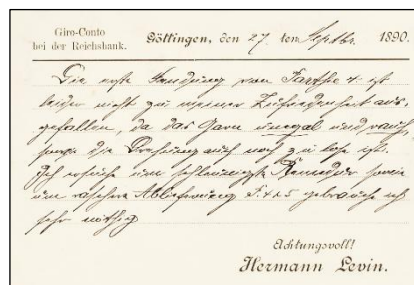 Giro-Conto
bei der Reichsbank.
Göttingen, den 27 ten Septbr. 1890.
Die erste Sendung von Parthie 4 ist
leider nicht zu meiner Zufriedenheit aus-
gefallen, da das Garn unegal und rauh,
sowie die Drehung auch noch zu lose ist.
Ich ersuche um schleunigste Remedur sowie
um raschere Ablieferung P. 4 & 5 gebrauche ich
sehr nöthig
Achtungsvoll!
Hermann Levin.